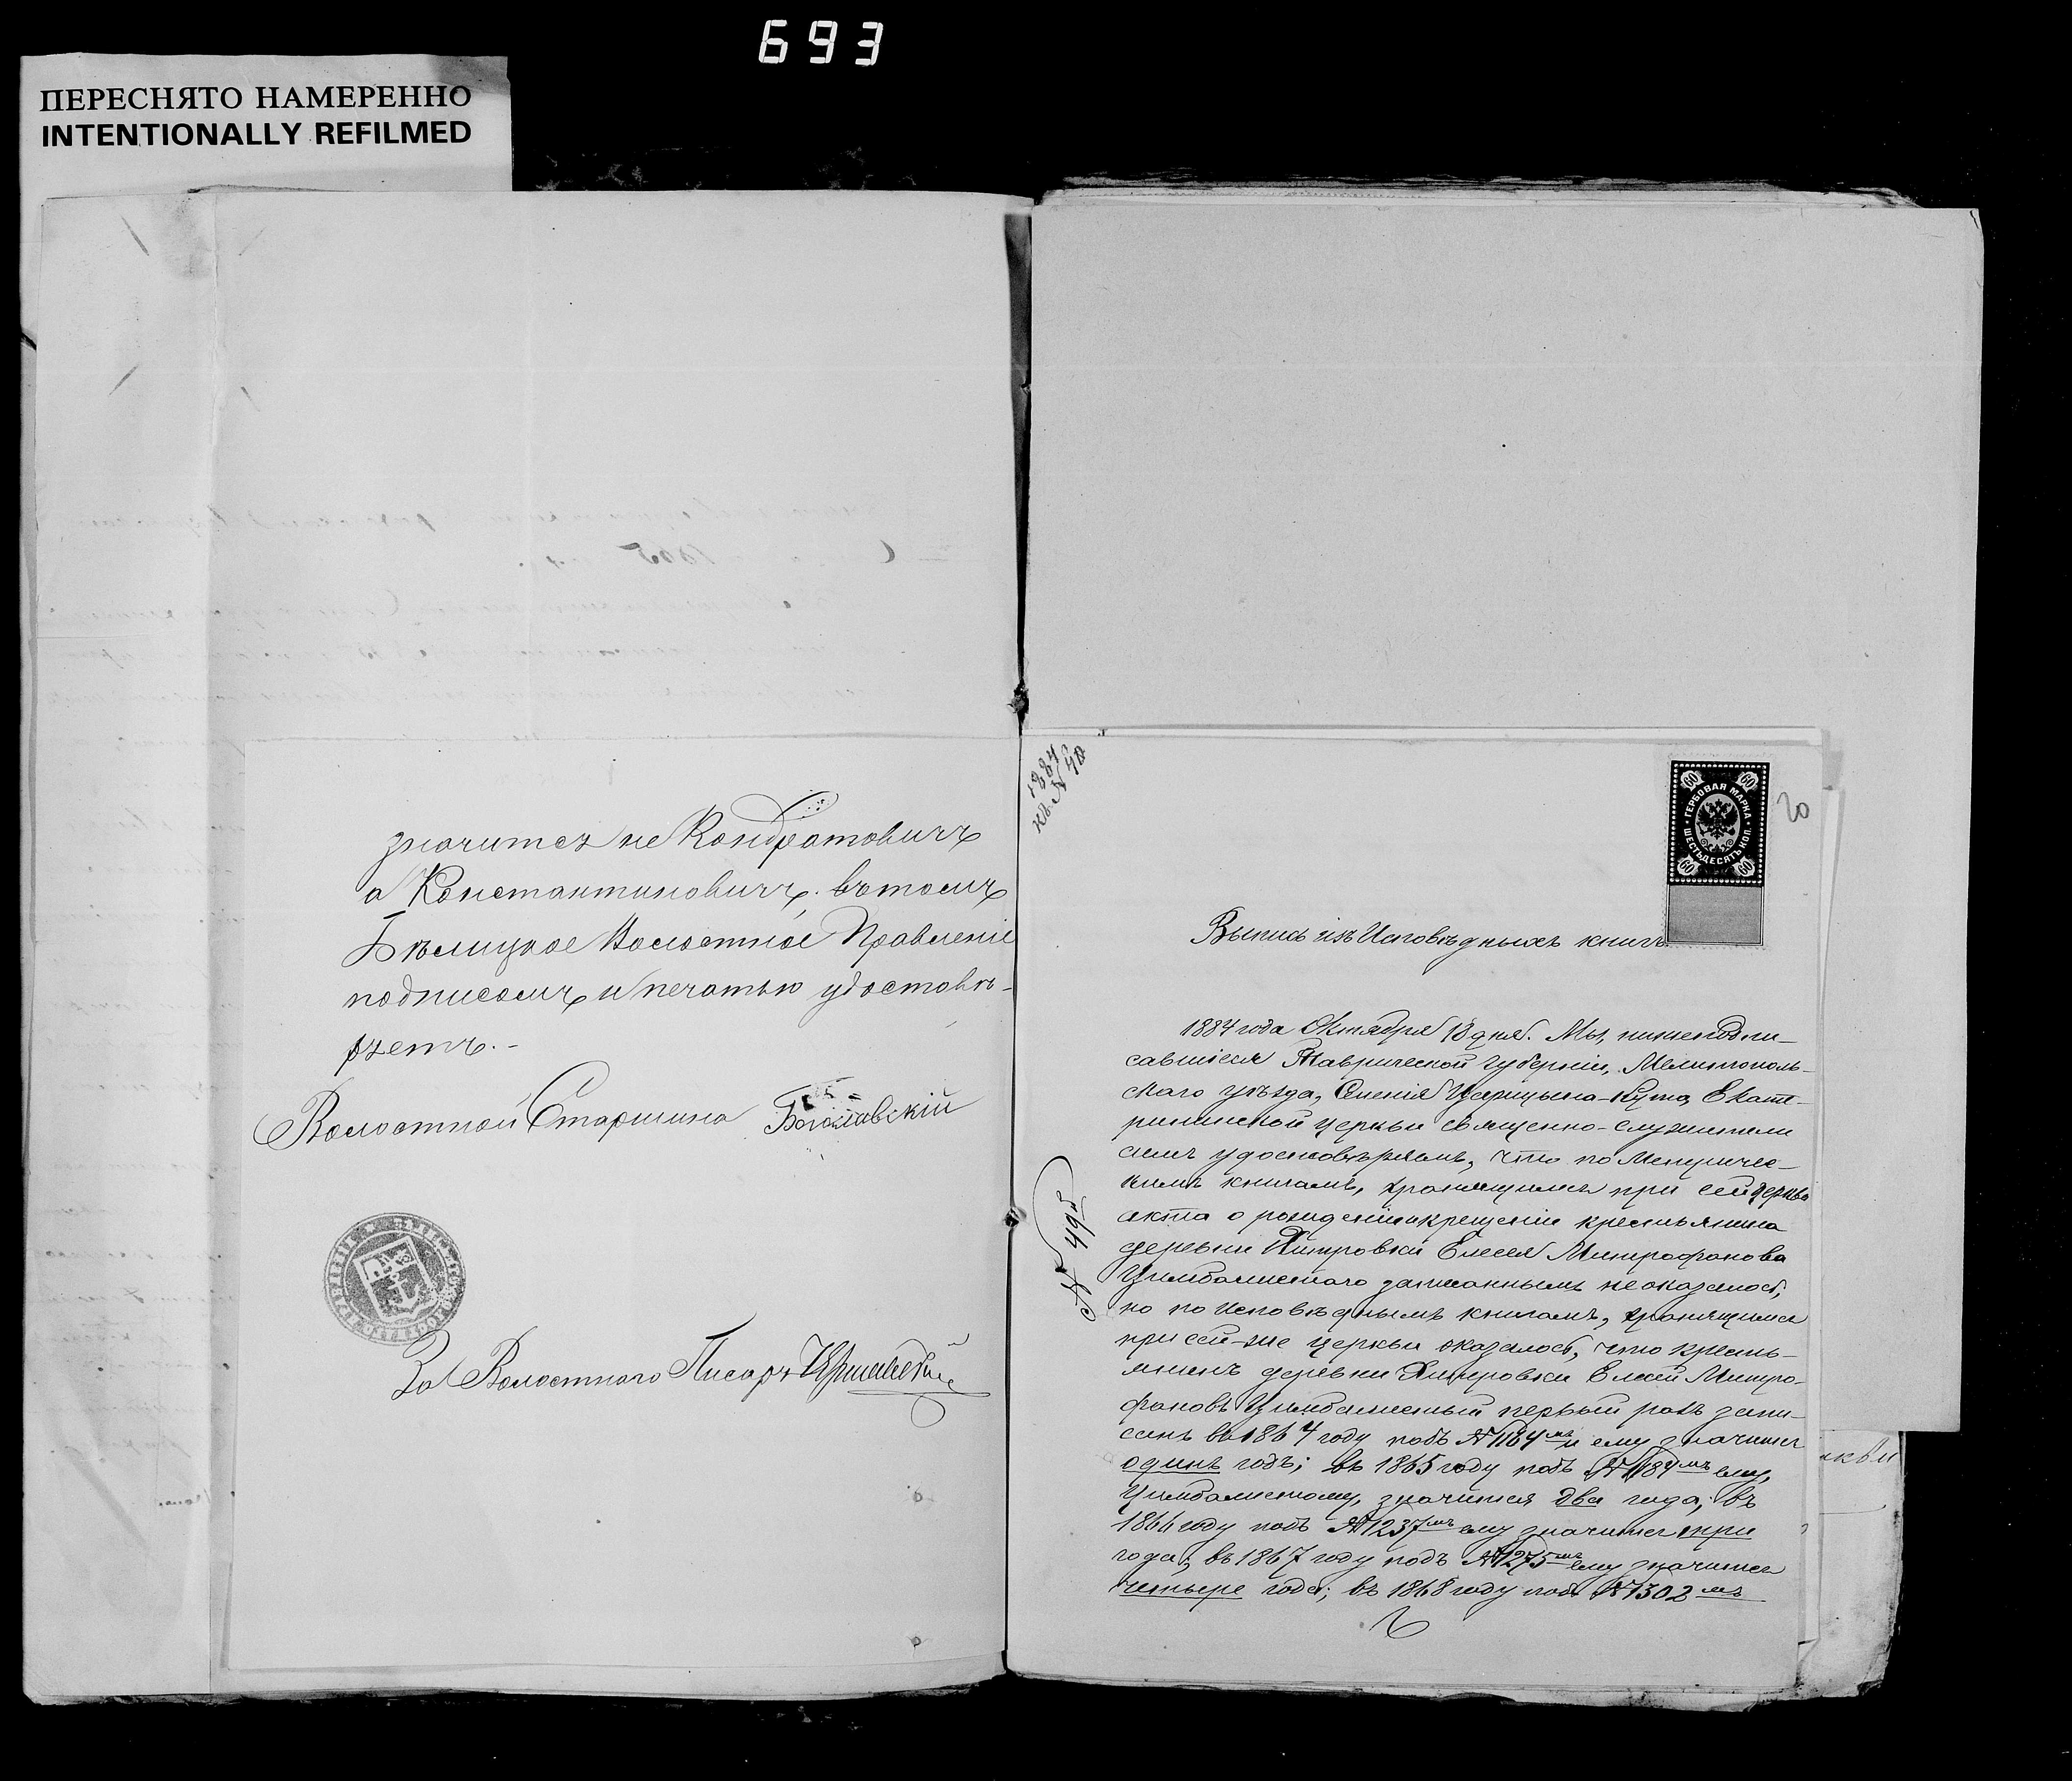 693
ПЕРЕСНЯТО НАМЕРЕННО
INTENTIONALLY REFILMED
значится не Кондратовичъ
а Константиновичъ. въ томъ
Бѣлицкое Волостное Правленіе
подписомъ и печатью удостовѣ-
ряетъ.-
Волостной Старшина Богославскій
За Волостного Писаря
1884
къ № 40
20
60 60
ГЕРБОВАЯ МАРКА
ШЕСТЬДЕСЯТЪ КОП.
60 60
Выпись изъ Исповѣдныхъ книгъ
1884 года Октября 18 дня. Мы, нижеподпи-
савшіеся Таврической Губерніи, Мелитополь-
скаго уѣзда, Селенія Царицына-Кута, Екате-
рининской церкви священно-служители
симъ удостовѣряемъ, что по Метричес-
кимъ книгамъ, хранящимся при сей церкви
акта о рожденіи и крещеніи крестьянина
деревни Димтровки Елесея Митрофанова
Цимбалистаго записаннымъ не оказалось,
но по Исповѣднымъ книгамъ, хранящимся
при сей-же церкви оказалось, что кресть-
янинъ деревни Димтровки Елесей Митро-
фановъ Цимбалистый первый разъ запи-
санъ въ 1864 году подъ №1184мъ и ему значится
одинъ годъ; въ 1865 году подъ №1184мъ ему,
Цимбалистому, значится два года; въ
1866 году подъ №1237мъ ему значится три
года; въ 1867 году подъ №1275мъ ему значится
четыре года; въ 1868 году подъ №1302мъ
№ 498